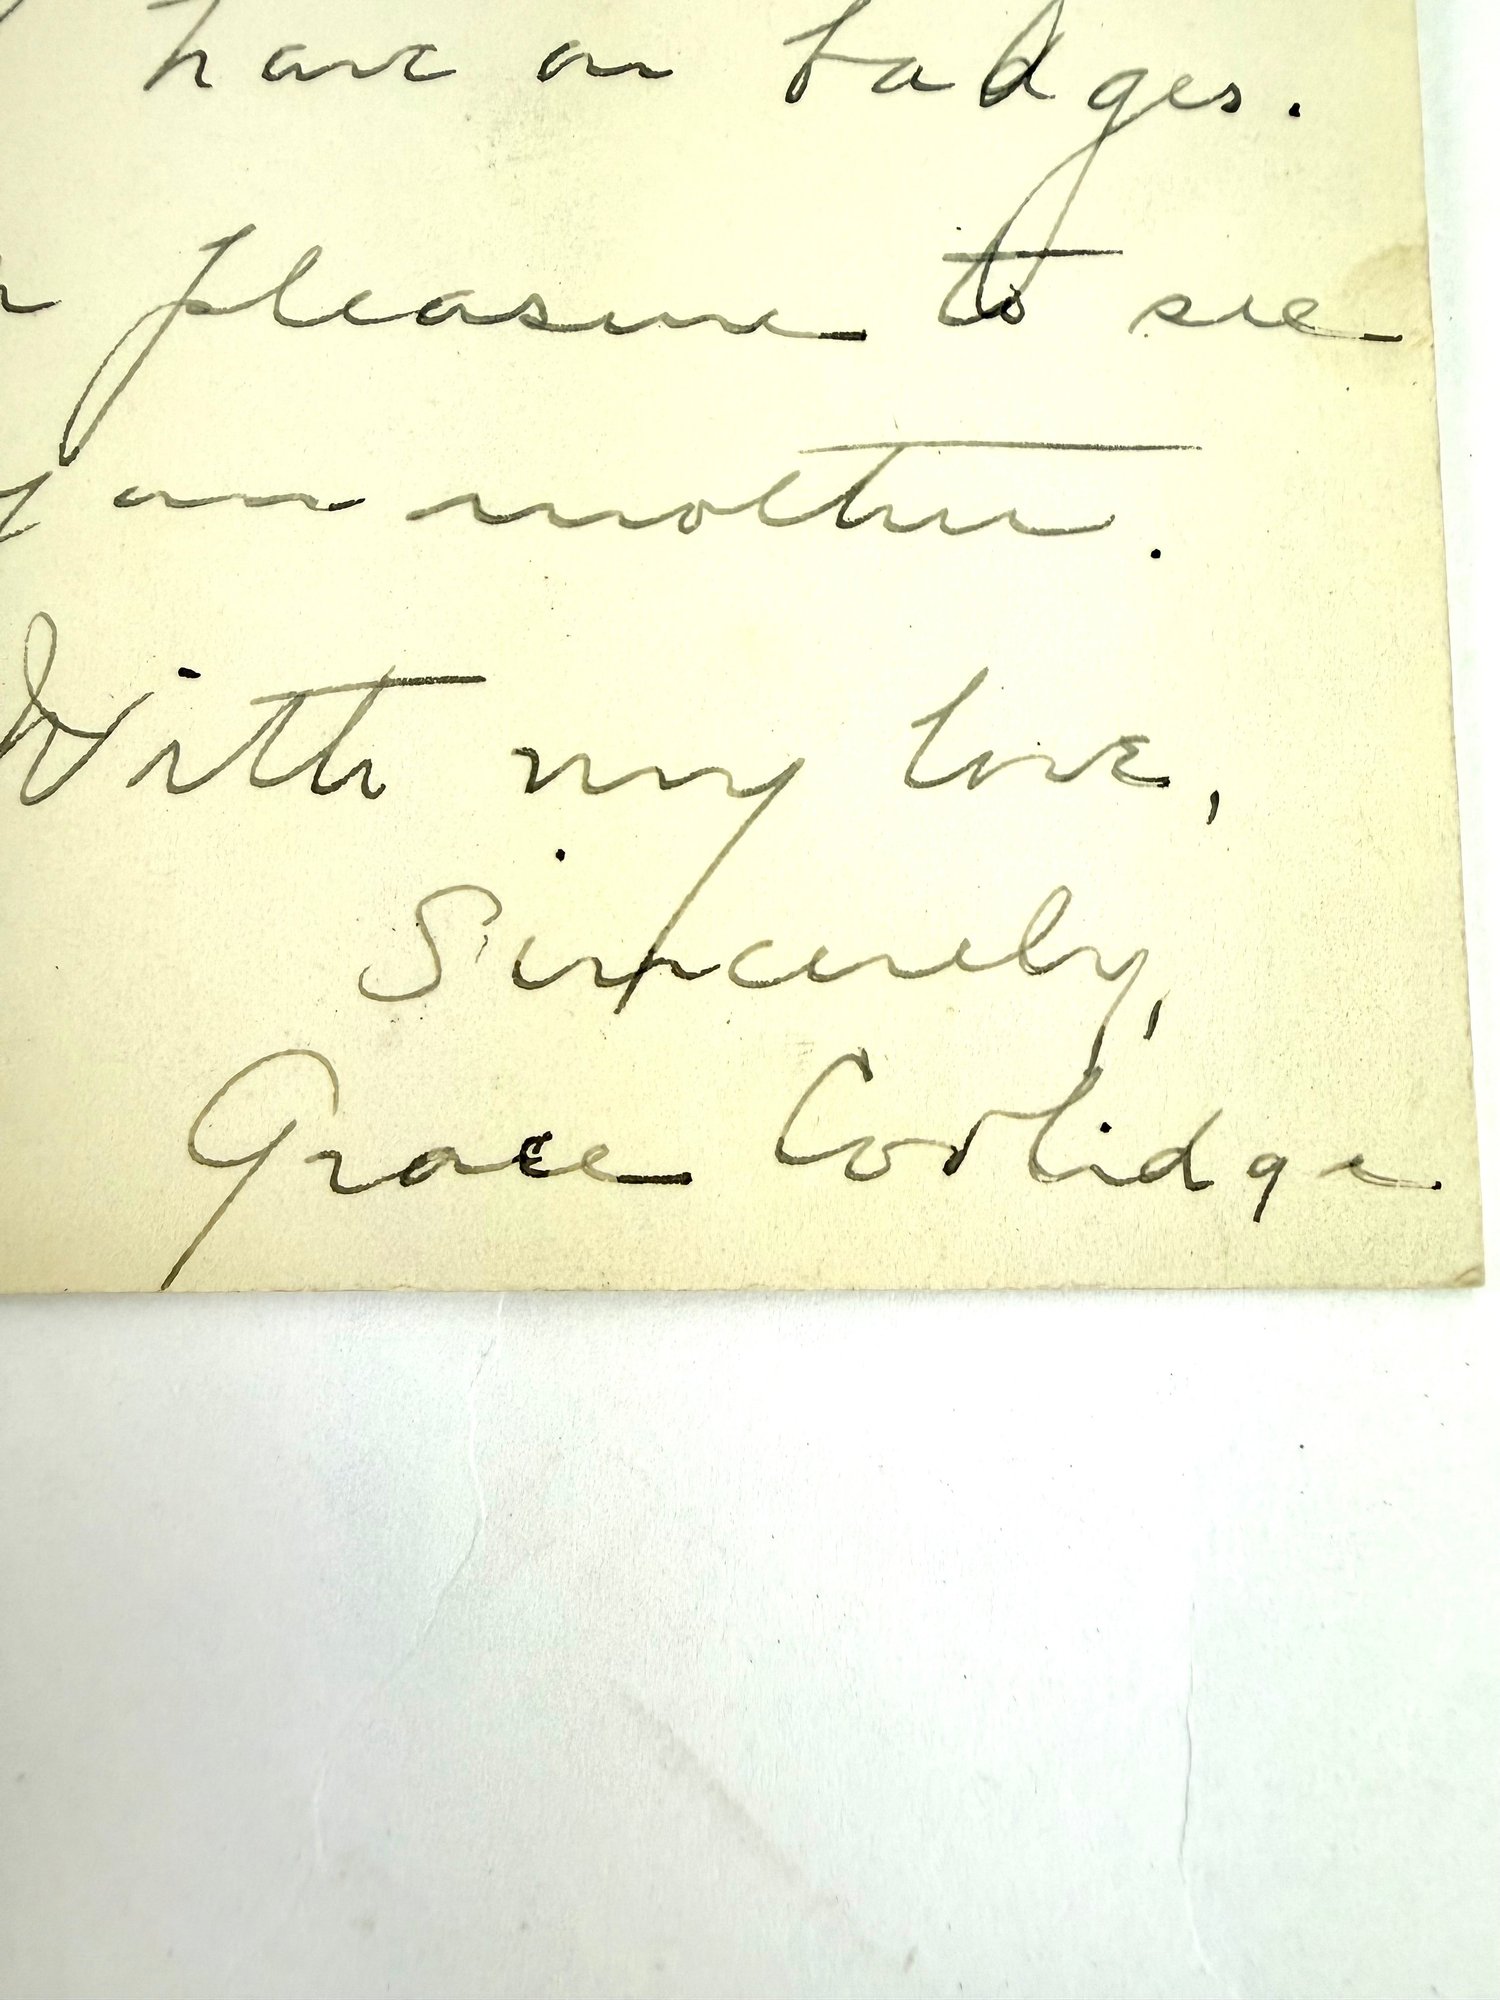 have on badges.
pleasure to see
an mother.
With my love,
Sincerely,
Grace Coolidge.